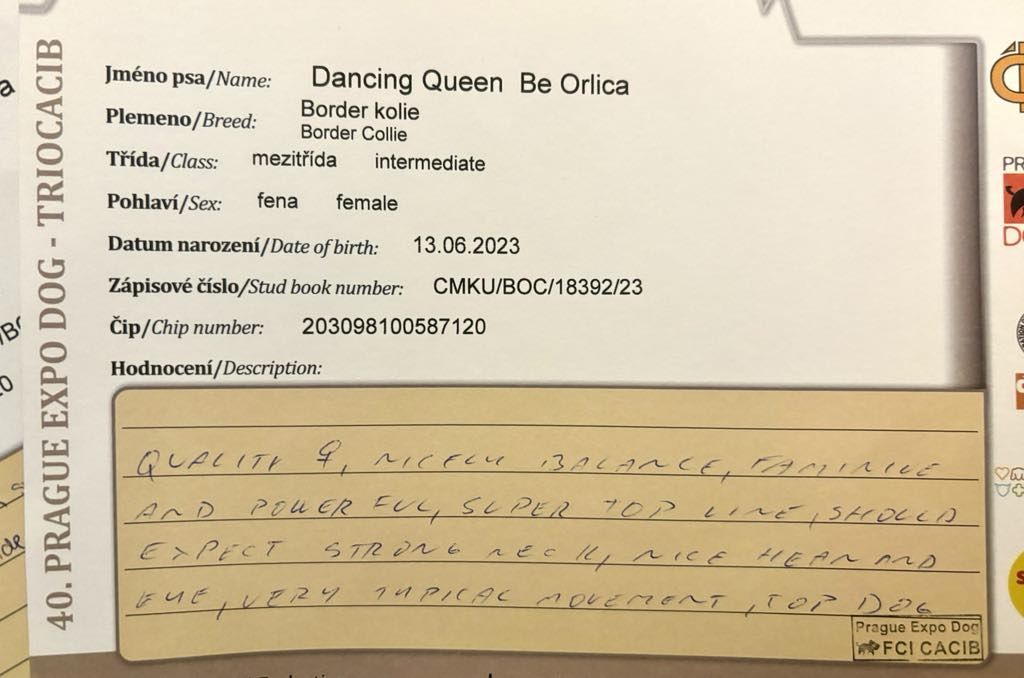 40. PRAGUE EXPO DOG - TRIOCACIB
Jméno psa/Name: Dancing Queen Be Orlica
Plemeno/Breed: Border kolie
Border Collie
Třída/Class: mezitřída intermediate
Pohlaví/Sex: fena female
Datum narození/Date of birth: 13.06.2023
Zápisové číslo/Stud book number: CMKU/BOC/18392/23
Čip/Chip number: 203098100587120
Hodnocení/Description:
QUALITY ♀, NICELY BALANCE, FAMINIVE
AND POWERFUL, SUPER TOP LINE, SHOULD
EXPECT STRONG NECK, NICE HEAD AND
EYE, VERY TYPICAL MOVEMENT, TOP DOG
Prague Expo Dog
FCI CACIB